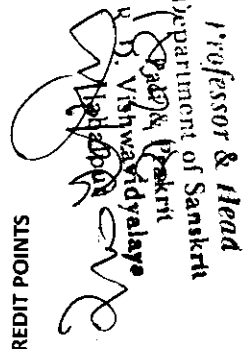 Professor & Head
Department of Sanskrit
Pali & Prakrit
Vishwavidyalaya
REDIT POINTS